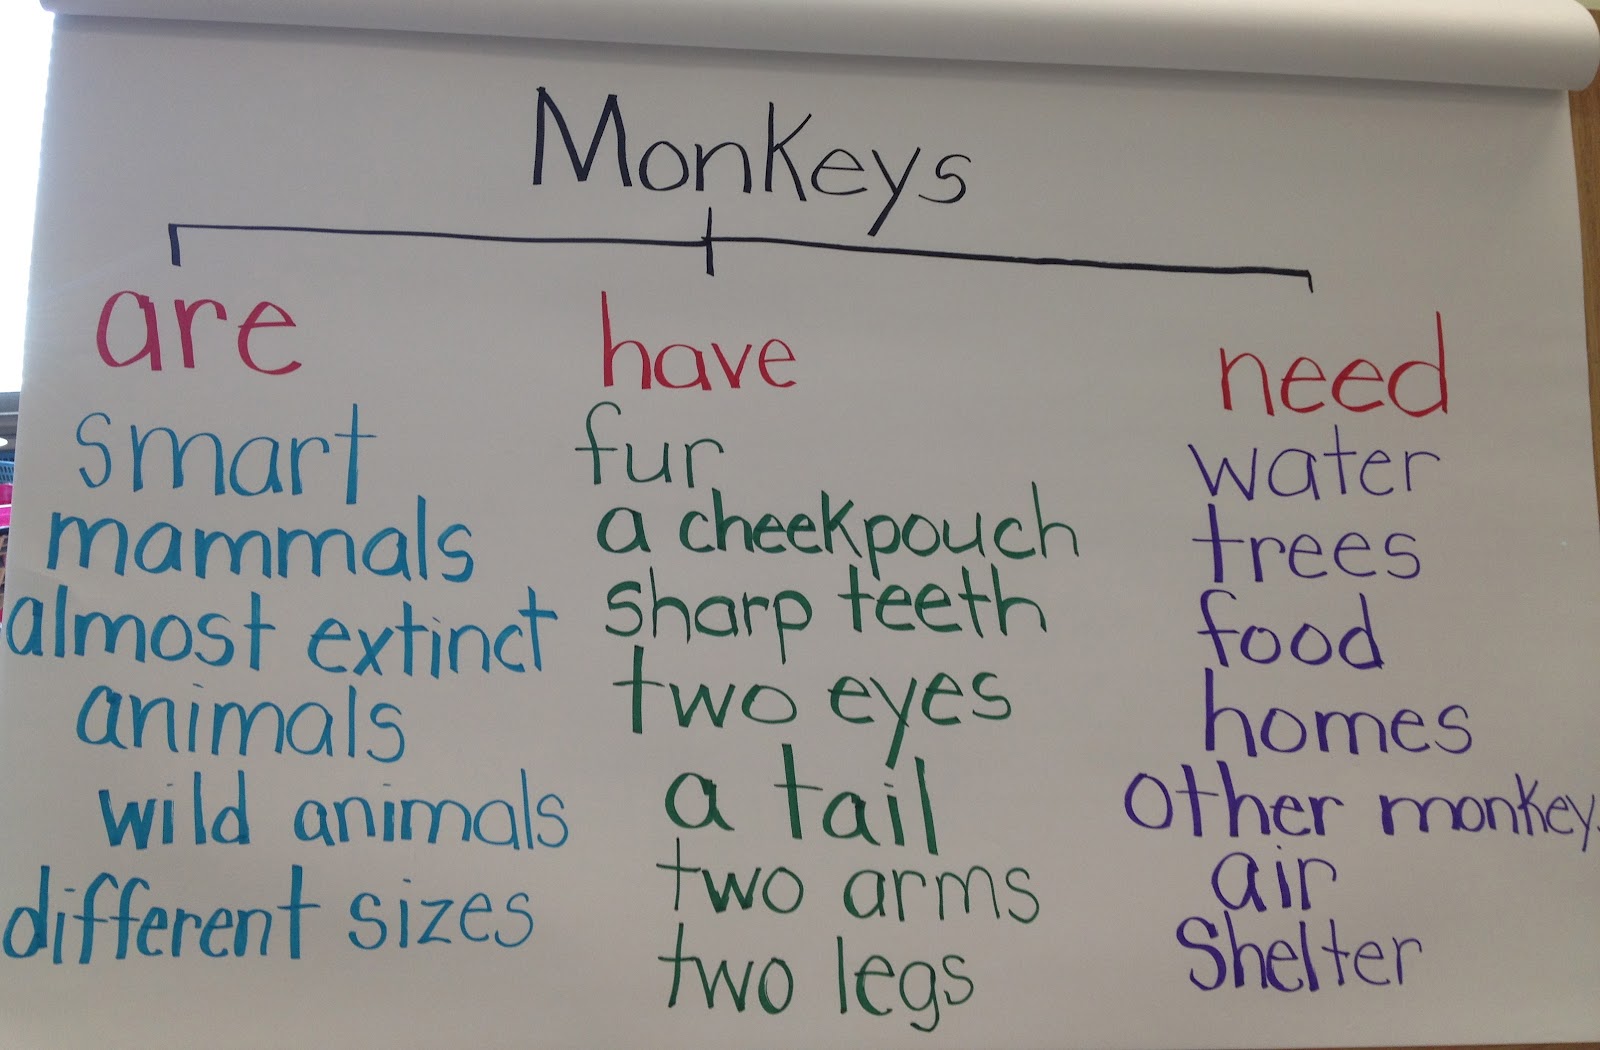 Monkeys
are
smart
mammals
almost extinct
animals
wild animals
different sizes
have
fur
a cheekpouch
sharp teeth
two eyes
a tail
two arms
two legs
need
water
trees
food
homes
other monkey
air
Shelter